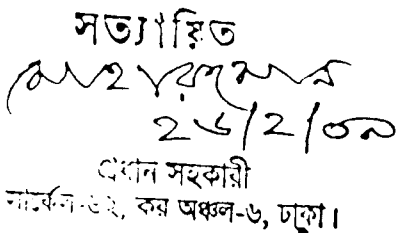 সত্যায়িত
২৬/২/০৯
প্রধান সহকারী
সার্কেল-৬২, কর অঞ্চল-৬, ঢাকা।